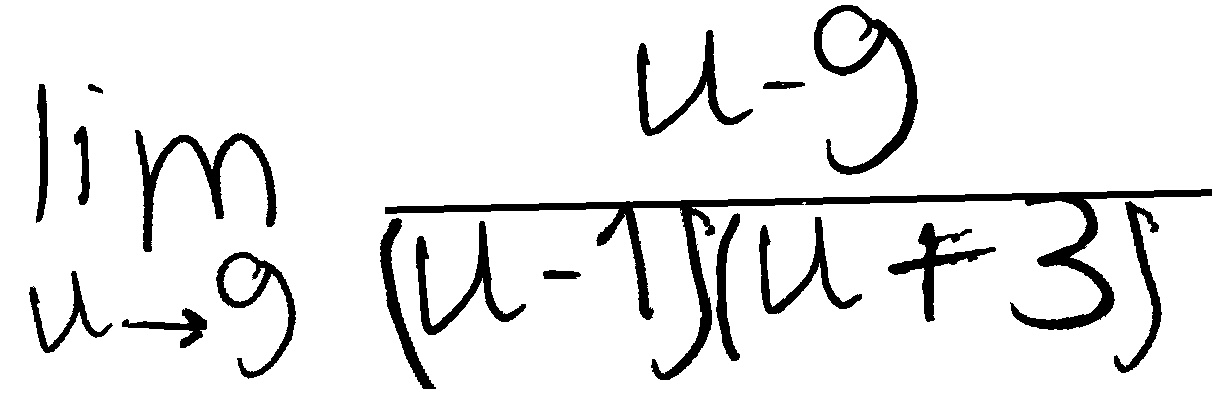 \lim_{u \to 9} \frac{u-9}{(u-1)(u+3)}